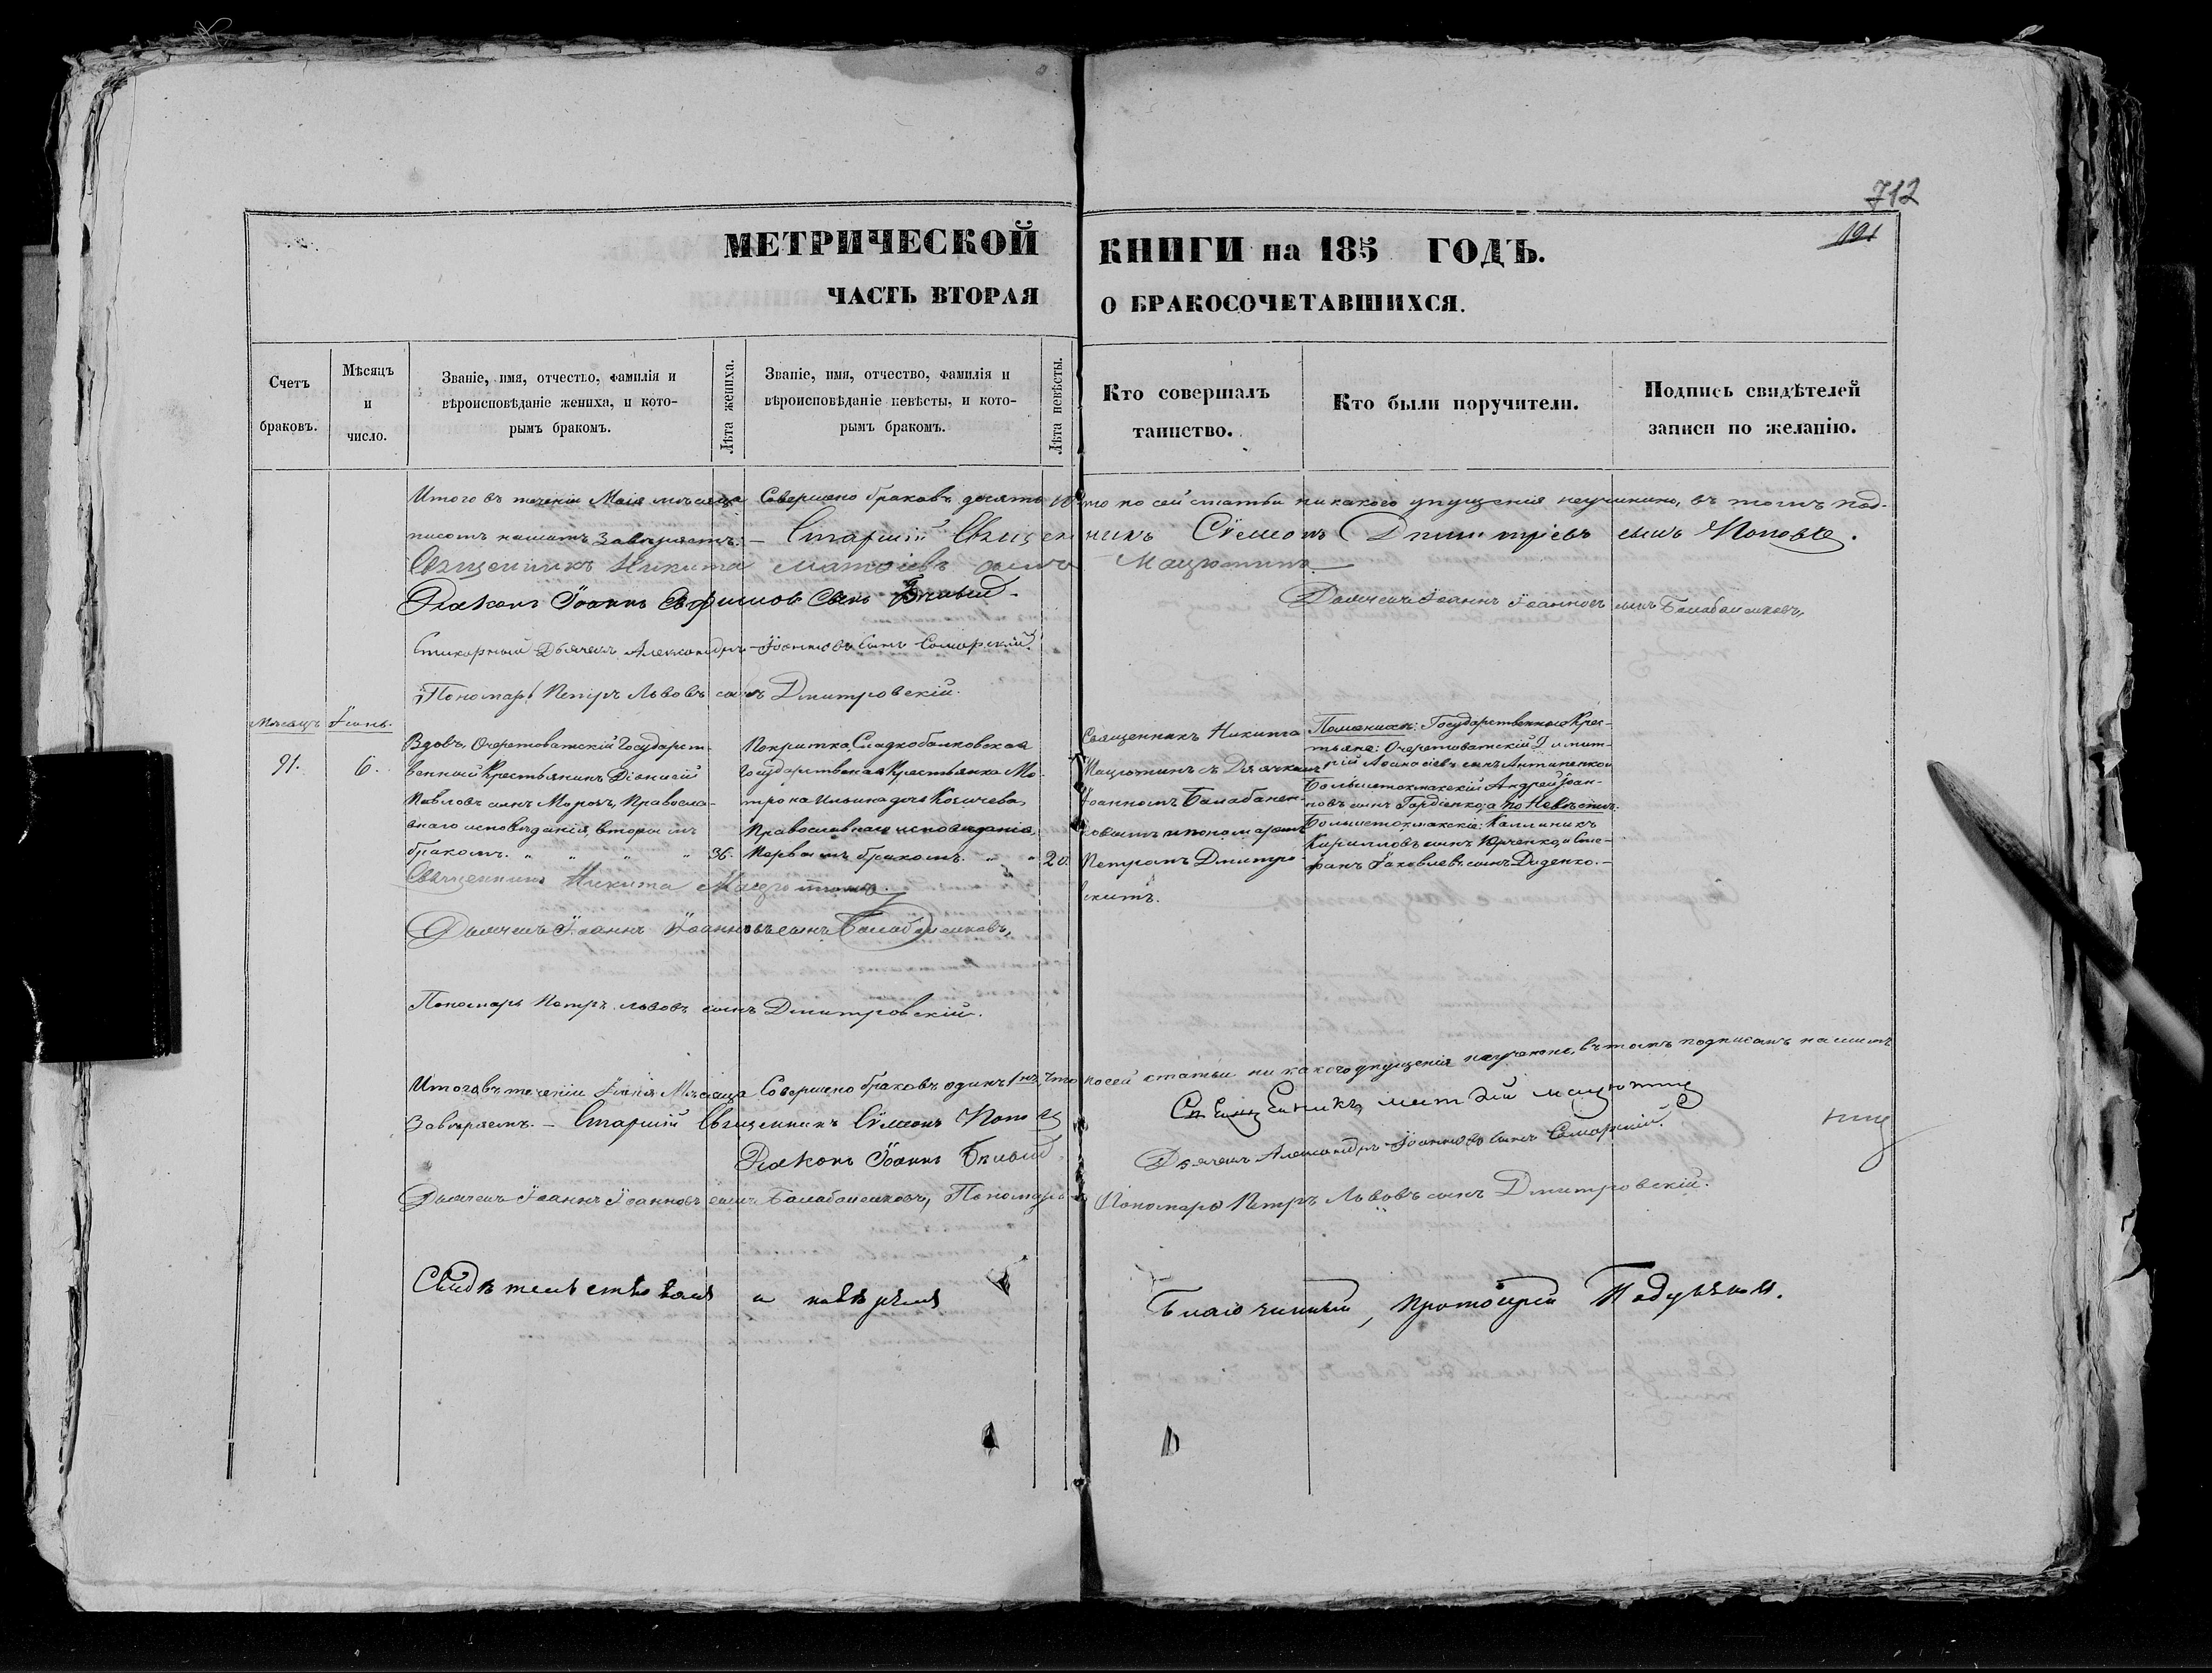 712
191
МЕТРИЧЕСКОЙ КНИГИ на 185 ГОДЪ.
ЧАСТЬ ВТОРАЯ О БРАКОСОЧЕТАВШИХСЯ.
Счетъ браковъ.
Мѣсяцъ и число.
Званіе, имя, отчество, фамилія и
вѣроисповѣданіе жениха, и кото-
рымъ бракомъ.
Лѣта жениха.
Званіе, имя, отчество, фамилія и
вѣроисповѣданіе невѣсты, и кото-
рымъ бракомъ.
Лѣта невѣсты.
Кто совершалъ
таинство.
Кто были поручители.
Подпись свидѣтелей
записи по желанію.
Итого въ теченіи Маія мѣсяца Совершено браковъ десять 10 что по сей статьи никакого упущенія неучинено, въ томъ под-
писомъ нашимъ Завѣряемъ. – Старшій Священникъ Сѵмеонъ Димитріевъ сынъ Поповъ.
Священникъ Никита Матѳіевъ сынъ Мацютинъ
Діаконъ Іоаннъ сынъ
Дьячекъ Іоаннъ Іоанновъ сынъ Балабаненковъ,
Стихарный Дьячекъ Александръ Іоанновъ Сынъ Самарскій.
Пономарь Петръ Львовъ сынъ Дмитровскій.
Мѣсяцъ Іюнь.
91.
6.
Вдовъ, Очеретоватскій Государст-
венный Крестьянинъ Діонисій
Павловъ сынъ Морозъ, Правосла-
внаго исповѣданія, вторымъ
бракомъ. " " " "
36.
Покритка, Сладкобалковская
Государственная Крестьянка Мо-
трона Ильина дочь Козачева,
Православнаго исповѣданія,
Первымъ бракомъ. " "
20.
Священникъ Никита
Мацютинъ съ Дьячкомъ
Іоанномъ Балабанен-
ковымъ и пономаремъ
Петромъ Дмитро-
вскимъ.
По женихѣ: Государственные Крес-
тьяне: Очеретоватскій Димит-
рій Аѳанасіевъ сынъ Антипенко и
Большетокмакскій Андрей Іоан-
новъ сынъ Гордіенко; а по Невѣстѣ:
Большетокмакскіе: Каллиникъ
Кирилловъ сынъ Юрченко и Сте-
фанъ Іаковлевъ сынъ Диденко. –
Священникъ Никита Мацютинъ.
Дьячекъ Іоаннъ Іоанновъ сынъ Балабаненковъ,
Пономарь Петръ Львовъ сынъ Дмитровскій.
Итого въ теченіи Іюня Мѣсяца Совершено браковъ одинъ 1 что по сей статьи никакого упущенія неучинено, въ томъ подписомъ нашимъ
Завѣряемъ. – Старшій Священникъ Сѵмеонъ Поповъ
Священикъ Матѳій Мацютинъ
Діаконъ Іоаннъ
Дьячекъ Александръ Іоанновъ Сынъ Самарскій.
Дьячекъ Іоаннъ Іоанновъ сынъ Балабаненковъ, Пономарь
Пономарь Петръ Львовъ сынъ Дмитровскій.
Свидѣтельствовалъ и повѣрялъ Благочинный, Протоіерей